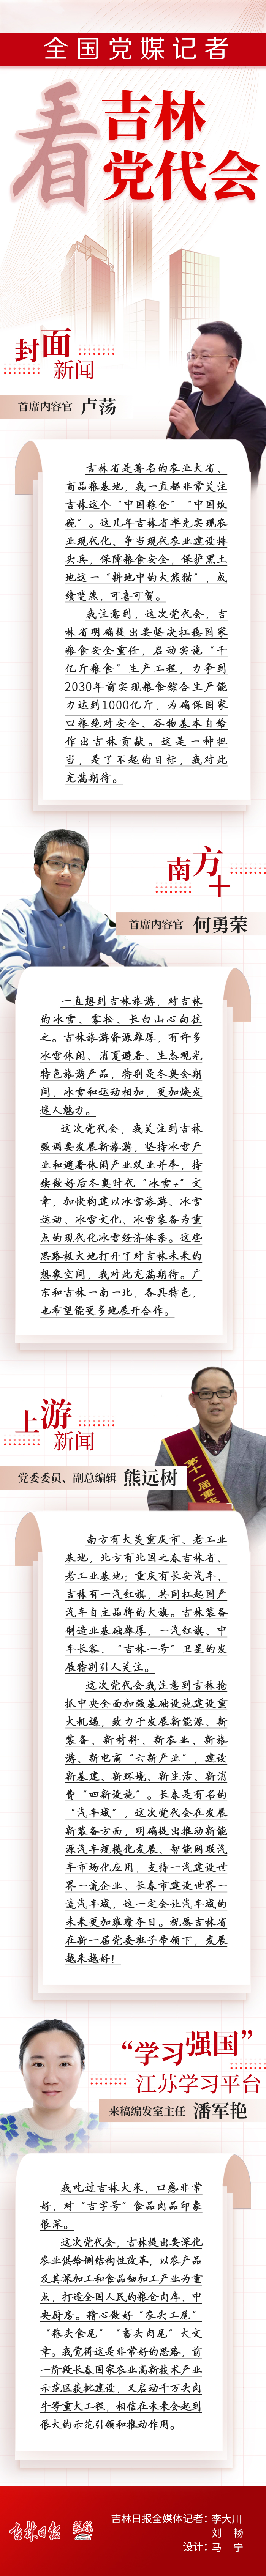 全国党媒记者
看
吉林
党代会
封面
新闻
首席内容官 卢荡
吉林省是著名的农业大省、
商品粮基地，我一直都非常关注
吉林这个“中国粮仓”“中国饭
碗”。这几年吉林省率先实现农
业现代化、争当现代农业建设排
头兵，保障粮食安全，保护黑土
地这一“耕地中的大熊猫”，成
绩斐然，可喜可贺。
我注意到，这次党代会，吉
林省明确提出要坚决扛稳国家
粮食安全重任，启动实施“千
亿斤粮食”生产工程，力争到
2030年前实现粮食综合生产能
力达到1000亿斤，为确保国家
口粮绝对安全、谷物基本自给
作出吉林贡献。这是一种担
当，是了不起的目标，我对此
充满期待。
南方+
首席内容官 何勇荣
一直想到吉林旅游，对吉林
的冰雪、雾凇、长白山心向往
之。吉林旅游资源雄厚，有许多
冰雪休闲、消夏避暑、生态观光
特色旅游产品，特别是冬奥会期
间，冰雪和运动相加，更加焕发
迷人魅力。
这次党代会，我关注到吉林
强调要发展新旅游，坚持冰雪产
业和避暑休闲产业双业并举，持
续做好后冬奥时代“冰雪+”文
章，加快构建以冰雪旅游、冰雪
运动、冰雪文化、冰雪装备为重
点的现代化冰雪经济体系。这些
思路极大地打开了对吉林未来的
想象空间，我对此充满期待。广
东和吉林一南一北，各具特色，
也希望能更多地展开合作。
上游
新闻
党委委员、副总编辑 熊远树
南方有大美重庆市、老工业
基地，北方有北国之春吉林省、
老工业基地；重庆有长安汽车、
吉林有一汽红旗，共同扛起国产
汽车自主品牌的大旗。吉林装备
制造业基础雄厚，一汽红旗、中
车长客、“吉林一号”卫星的发
展特别引人关注。
这次党代会我注意到吉林抢
抓中央全面加强基础设施建设重
大机遇，致力于发展新能源、新
装备、新材料、新农业、新旅
游、新电商“六新产业”，建设
新基建、新环境、新生活、新消
费“四新设施”。长春是有名的
“汽车城”，这次党代会在发展
新装备方面，明确提出推动新能
源汽车规模化发展、智能网联汽
车市场化应用，支持一汽建设世
界一流企业、长春市建设世界一
流汽车城，这一定会让汽车城的
未来更加璀璨夺目。祝愿吉林省
在新一届党委班子带领下，发展
越来越好！
“学习强国”
江苏学习平台
来稿编发室主任 潘军艳
我吃过吉林大米，口感非常
好，对“吉字号”食品肉品印象
很深。
这次党代会，吉林提出要深化
农业供给侧结构性改革，以农产品
及其深加工和食品细加工产业为重
点，打造全国人民的粮仓肉库、中
央厨房。精心做好“农头工尾”
“粮头食尾”“畜头肉尾”大文
章。我觉得这是非常好的思路，前
一阶段长春国家农业高新技术产业
示范区获批建设，又启动千万头肉
牛等重大工程，相信在未来会起到
很大的示范引领和推动作用。
吉林日报
吉林日报全媒体记者：李大川
刘 畅
设计：马 宁